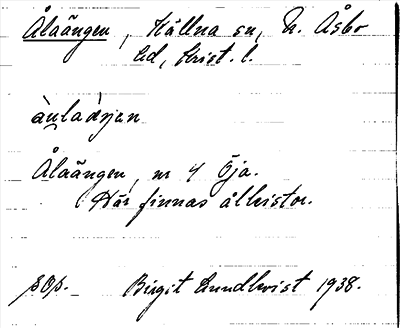 Ålaängen, Källna sn, N. Åsbo
hd, Krist. l.
Ålaängen, nr 4 Öja.
Här finnas ålkistor.
Birgit Lundkvist 1938.